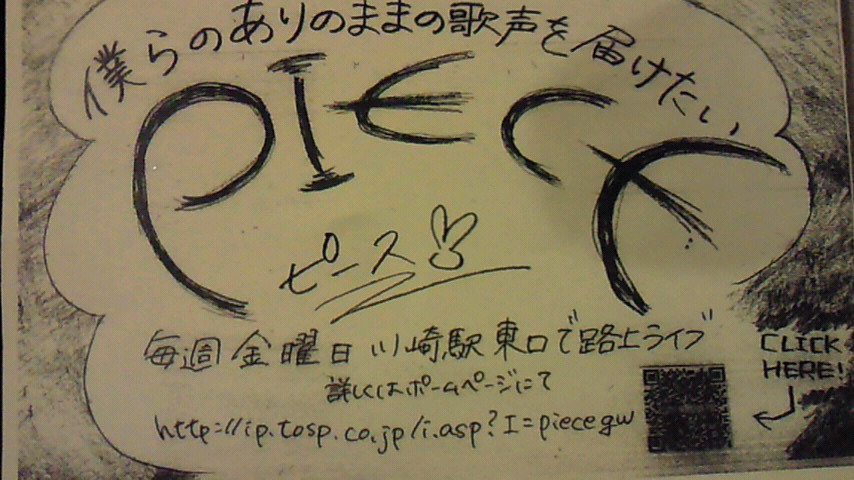 僕らのありのままの歌声を届けたい
PIECE
ピース
毎週金曜日川崎駅東口で路上ライブ
詳しくはホームページにて
http://ip.tosp.co.jp/i.asp?I=piecegw
CLICK
HERE!